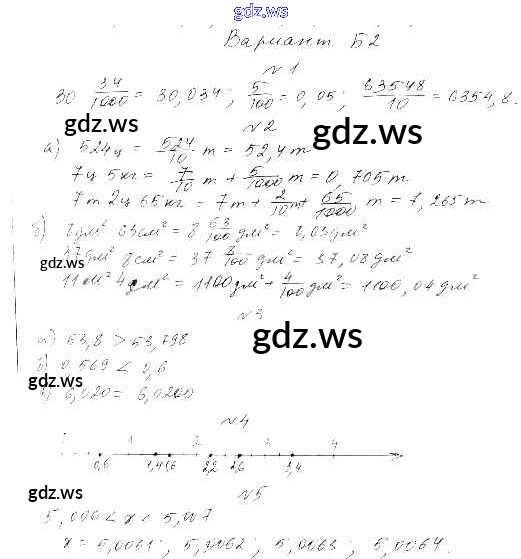 gdz.ws
Вариант Б2
№1
30 34/1000 = 30,034; 5/100 = 0,05; 63548/10 = 6354,8.
gdz.ws gdz.ws
№2
а) 524ц = 524/10 т = 52,4 т
7ц 5кг = 7/10 т + 5/1000 т = 0,705 т
7т 2ц 65кг = 7т + 2/10 т + 65/1000 т = 7,265 т
б) 8дм² 63см² = 8 63/100 дм² = 8,63дм²
gdz.ws
37дм² 8см² = 37 8/100 дм² = 37,08дм²
11м² 4 дм² = 1100дм² + 4/100 дм² = 1100,04дм²
№3
gdz.ws
а) 53,8 > 53,798
б) 0,569 < 0,6
gdz.ws
в) 6,020 = 6,0200
№4
1 2 3 4
0,6 1,4 1,6 2,2 2,6 3,4
№5
gdz.ws gdz.ws
5,006 < x < 5,007
x = 5,0061; 5,0062; 5,0063; 5,0064.
gdz.ws